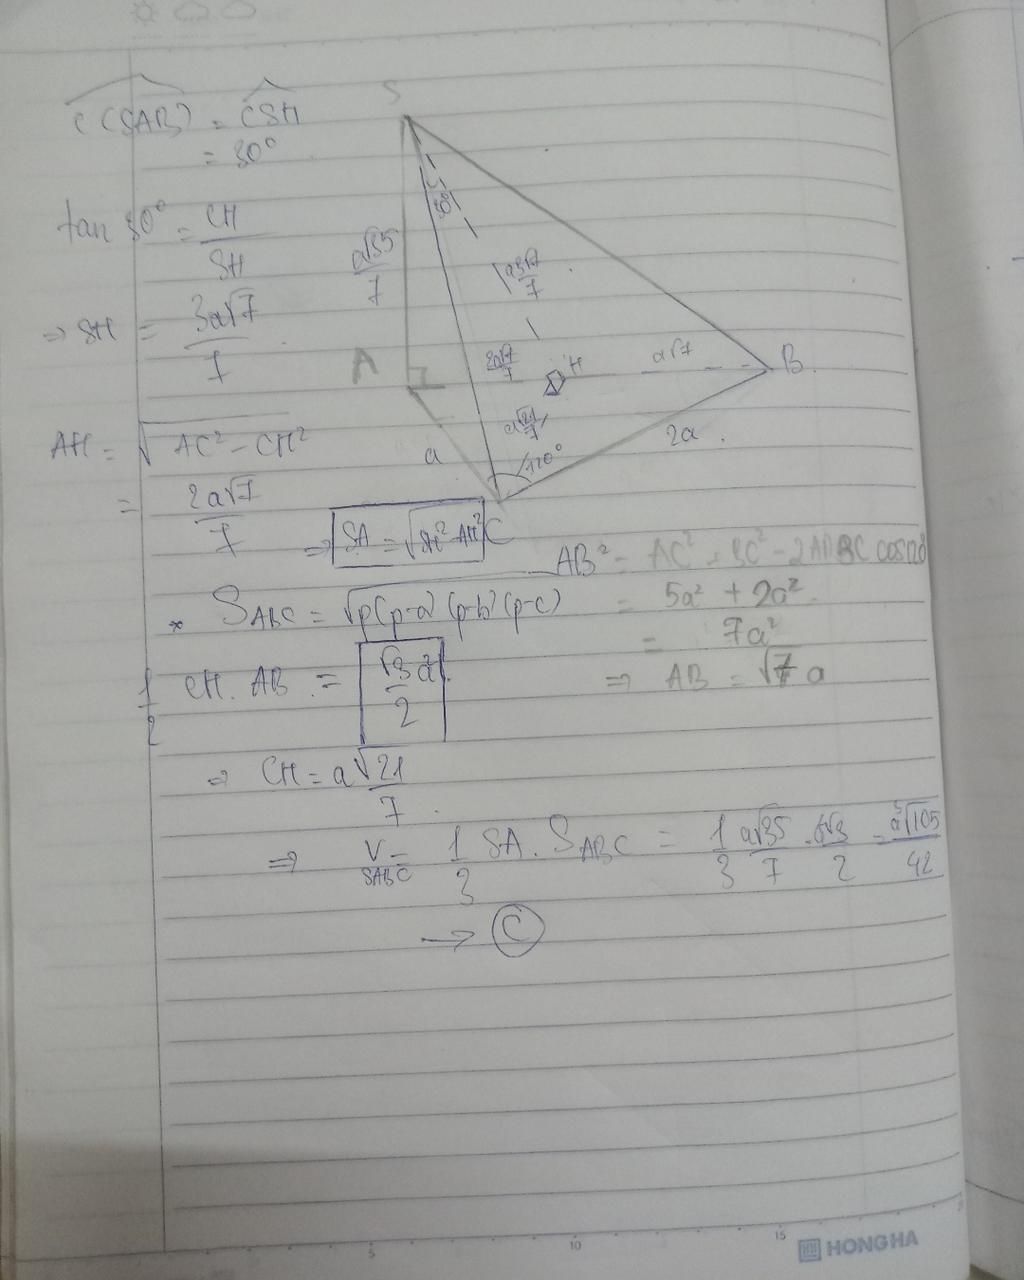 (C(SAB)) = CSH
= 30°
tan 30° = CH/SH
⇒ SH = 3a√7/7
AH = √(AC² - CH²)
= 2a√7/7
⇒ SA = √(SH² - AH²)
S
30°
a√35/7
a3√7/7
A
2a√7/7
H
a√7
B
a√21/7
a
120°
2a
C
AB² = AC² + BC² - 2AB BC cos 120°
= 5a² + 2a²
= 7a²
⇒ AB = √7 a
* S_ABC = √(p(p-a)(p-b)(p-c))
1/2 CH. AB = √3a²/2
⇒ CH = a√21/7
⇒ V_SABC = 1/3 SA. S_ABC = 1/3 a√35/7 . √3/2 = a³√105/42
→ C
5 10 15
HONG HA